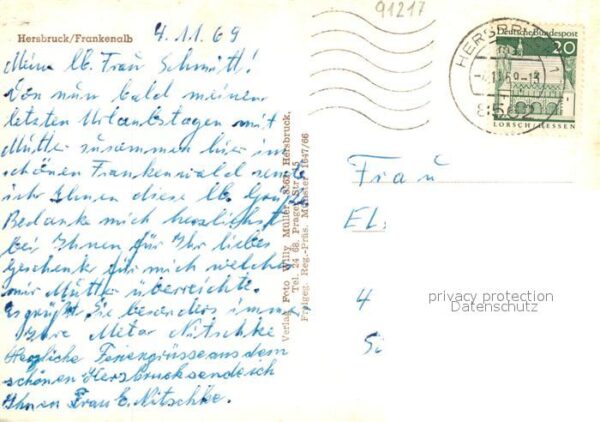 91217
Hersbruck/Frankenalb
4.11.69
Meine lb. Frau Schmitt!
Von nun bald meinen
letzten Urlaubstagen mit
Mutter zusammen hier im
schönen Frankenwald sende
ich Ihnen diese lb. Grüße
Bedanke mich herzlichst
bei Ihnen für Ihr liebes
Geschenk für mich welches
mir Mutter überreichte.
Es grüßt Sie besonders
Ihre Meta Nitschke
Herzliche Feriengrüsse aus dem
schönen Hersbruck sende ich
Ihnen Frau E. Nitschke.
Verlag Foto Willy Müller, 8562 Hersbruck,
Tel. 24 68, Prager Str. 15
Freigeg. Reg.-Präs. Münster 1647/66
HERSBRUCK
8562
Deutsche Bundespost
20
LORSCH/HESSEN
Frau
El.
4
privacy protection
Datenschutz